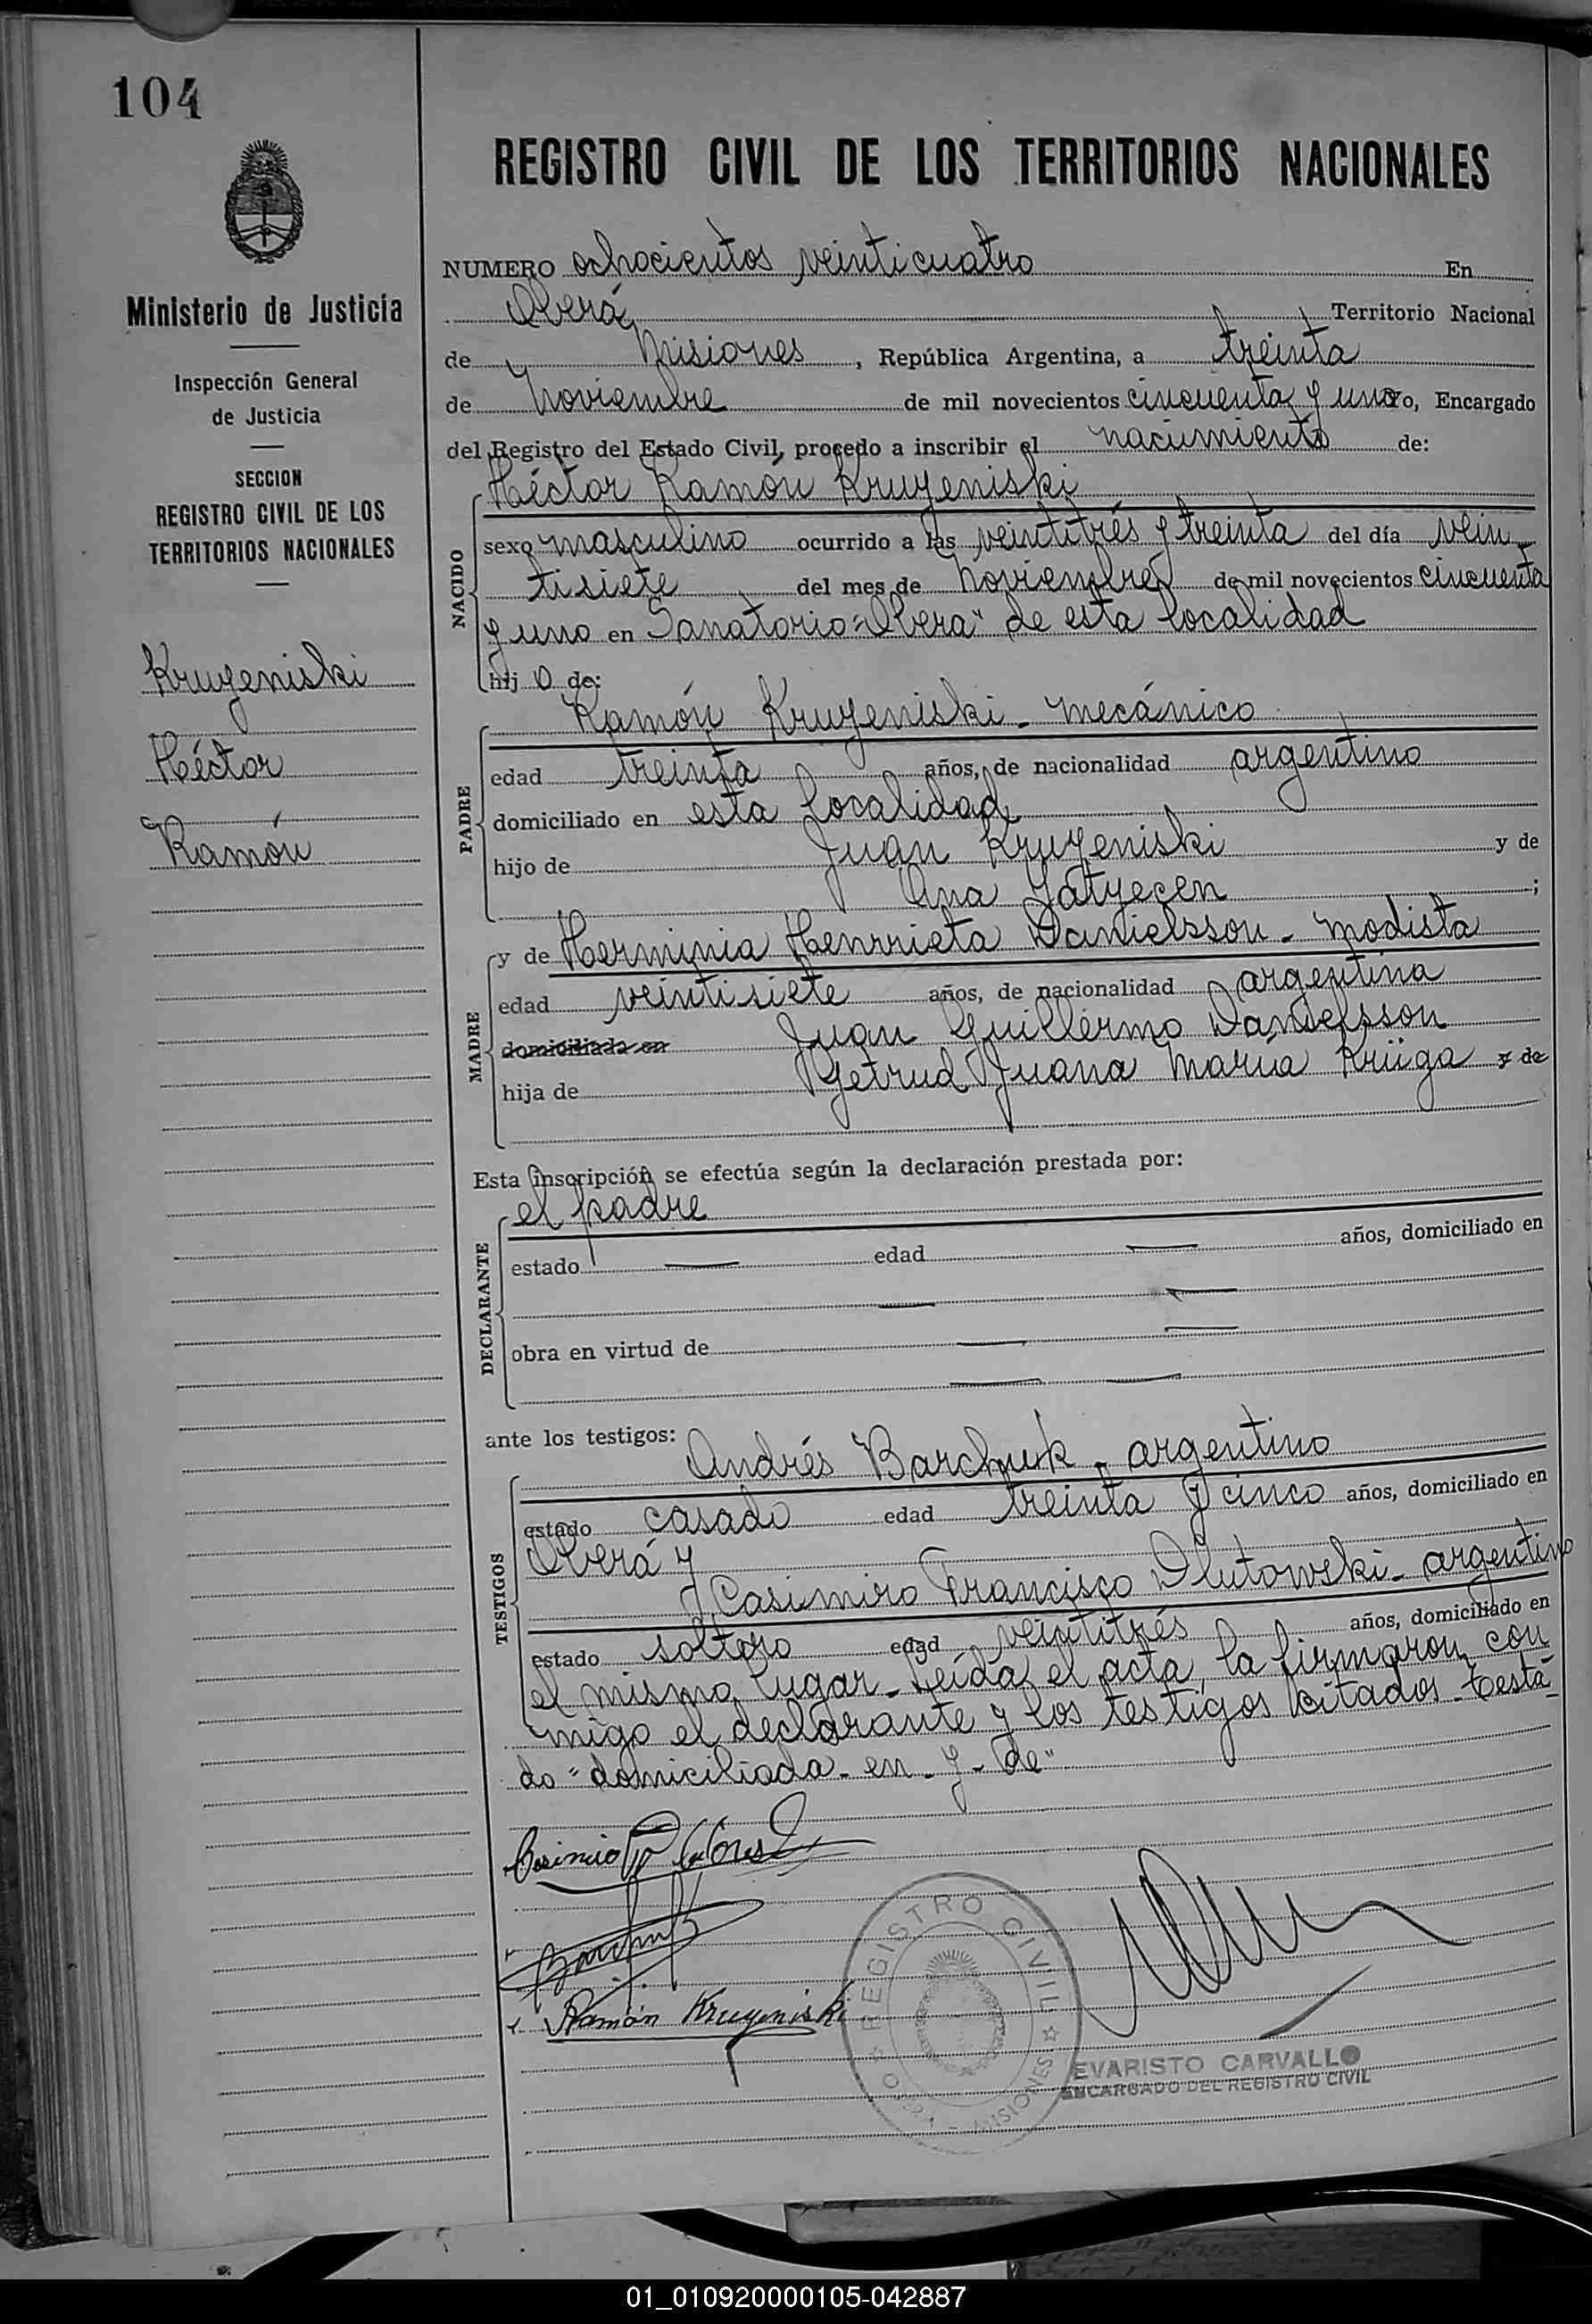 104
REGISTRO CIVIL DE LOS TERRITORIOS NACIONALES
Ministerio de Justicia
Inspección General
de Justicia
SECCION
REGISTRO CIVIL DE LOS
TERRITORIOS NACIONALES
Kruyeniski
Héctor
Ramón
NUMERO ochocientos veinticuatro En
Oberá Territorio Nacional
de Misiones, República Argentina, a treinta
de Noviembre de mil novecientos cincuenta y uno yo, Encargado
del Registro del Estado Civil, procedo a inscribir el nacimiento de:
NACIDO
Héctor Ramón Kruyeniski
sexo masculino ocurrido a las veintitrés y treinta del día vein
tisiete del mes de Noviembre de mil novecientos cincuenta
y uno en Sanatorio "Obera" de esta localidad
hij o de:
PADRE
Ramón Kruyeniski - mecánico
edad treinta años, de nacionalidad argentino
domiciliado en esta localidad
hijo de Juan Kruyeniski y de
Ana ;
MADRE
y de Herminia Henrrieta Danielsson - modista
edad veintisiete años, de nacionalidad argentina
domiciliada en Juan Guillermo Danielsson
hija de Getrud Juana María Krüga y de
Esta inscripción se efectúa según la declaración prestada por:
DECLARANTE
el padre
estado — edad — años, domiciliado en
obra en virtud de
ante los testigos:
TESTIGOS
Andrés Barchuk - argentino
estado casado edad treinta y cinco años, domiciliado en
Oberá y
Casimiro Francisco Dlutowski - argentino
estado soltero edad veintitrés años, domiciliado en
el mismo lugar - Leída el acta, la firmaron con
migo el declarante y los testigos citados - Testa
do "domiciliada - en - y - de"
Barchuk
Ramón Kruyeniski
REGISTRO CIVIL
OBERA - MISIONES
EVARISTO CARVALLO
ENCARGADO DEL REGISTRO CIVIL
01_010920000105-042887